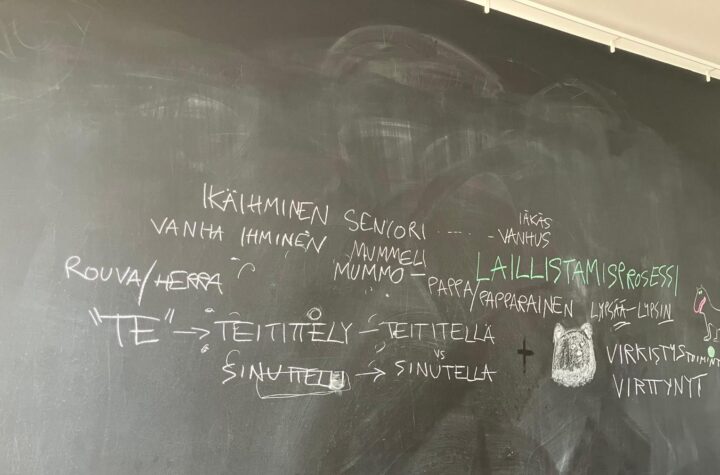 IKÄIHMINEN SENIORI ..... IÄKÄS
VANHA IHMINEN
VANHUS
MUMMELI
MUMMO –
ROUVA/HERRA
LAILLISTAMISPROSESSI
PAPPA/PAPPARAINEN
LYPSÄÄ – LYPSIN
"TE" → TEITITTELY – TEITITELLÄ
VS
SINUTTELU → SINUTELLA
+
VIRKISTYSTOIMINT
VIRTTYNYT